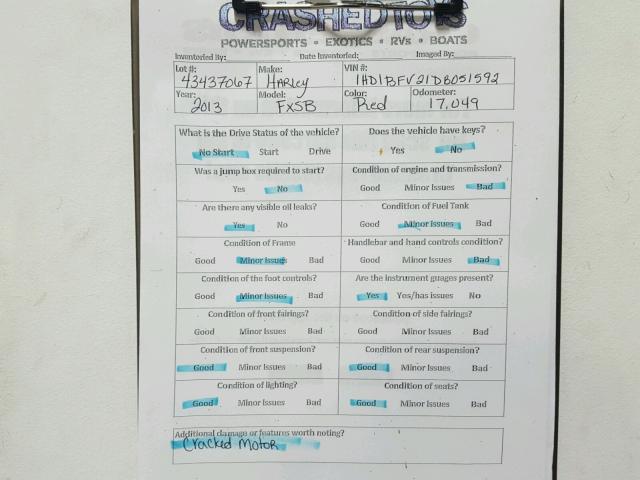 CRASHEDTOYS
POWERSPORTS • EXOTICS • RVs • BOATS
Inventoried By: Date Inventoried: Imaged By:
Lot #: Make: VIN #:
43437067 HARLEY 1HD1BFV21DB051592
Year: Model: Color: Odometer:
2013 FXSB Red 17,049
What is the Drive Status of the vehicle? Does the vehicle have keys?
No Start Start Drive Yes No
Was a jump box required to start? Condition of engine and transmission?
Yes No Good Minor Issues Bad
Are there any visible oil leaks? Condition of Fuel Tank
Yes No Good Minor Issues Bad
Condition of Frame Handlebar and hand controls condition?
Good Minor Issues Bad Good Minor Issues Bad
Condition of the foot controls? Are the instrument guages present?
Good Minor Issues Bad Yes Yes/has issues No
Condition of front fairings? Condition of side fairings?
Good Minor Issues Bad Good Minor Issues Bad
Condition of front suspension? Condition of rear suspension?
Good Minor Issues Bad Good Minor Issues Bad
Condition of lighting? Condition of seats?
Good Minor Issues Bad Good Minor Issues Bad
Additional damage or features worth noting?
Cracked Motor